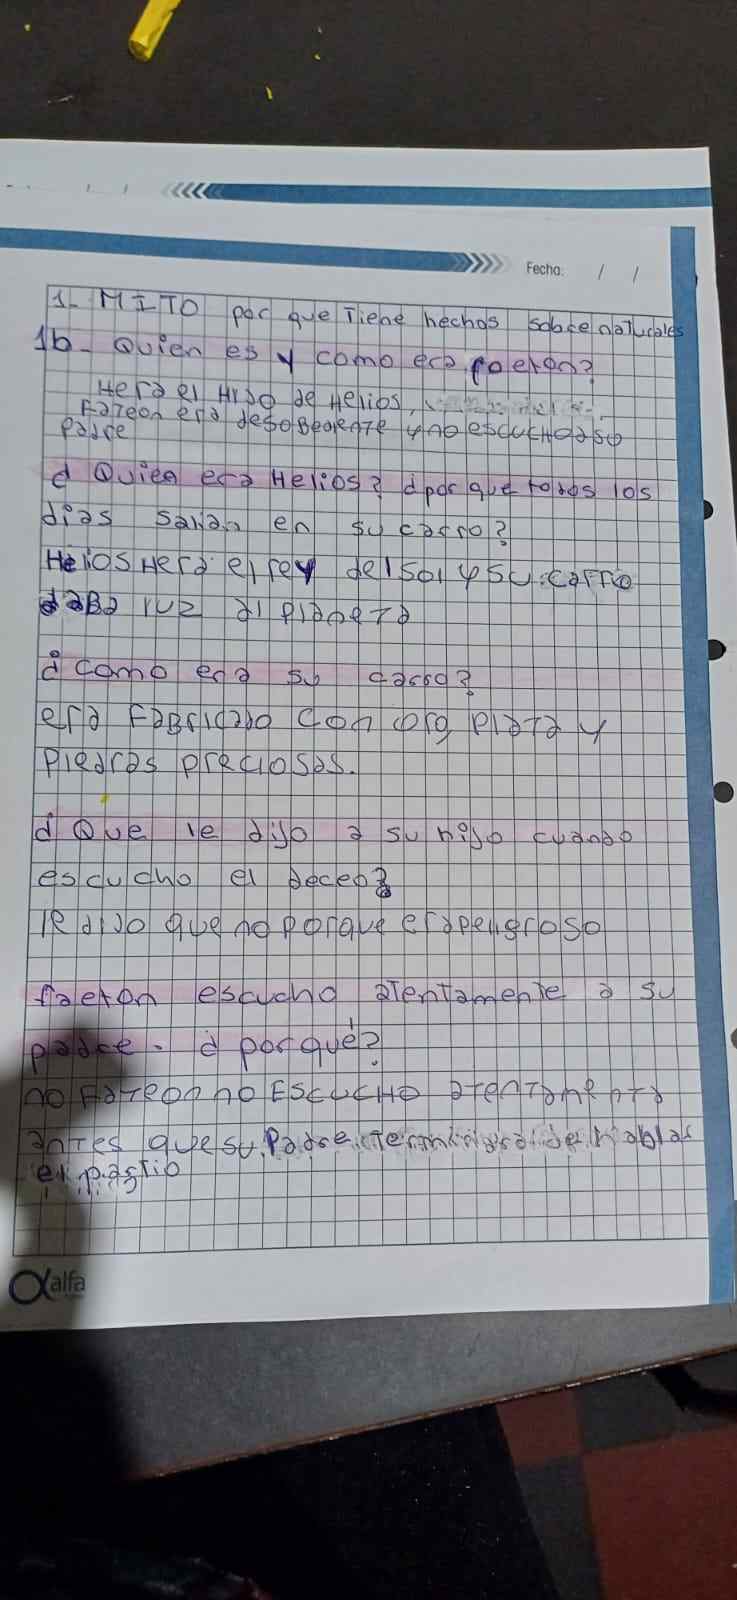 Fecha: / /
1- MITO por que Tiene hechos sobre naturales
1b- Quien es y como era faeton?
Hera el HIJO de Helios,
Fateon era desobediente y no escuchó a so
Padre
¿ Quien era Helios? ¿por que todos los
dias salian en su carro?
Helios Hera el rey del sol y su carrio
daba luz al planeta
¿ como era su carro?
era Fabricado con oro plata y
piedras preciosas.
¿ Que le dijo a su hijo cuando
escucho el deceo?
le dijo que no porque era peligroso
faeton escucho atentamente a su
padre. ¿ por qué?
no Fateon no ESCUCHO atentamenta
antes que su Padre terminara de hablar
el partio
alfa